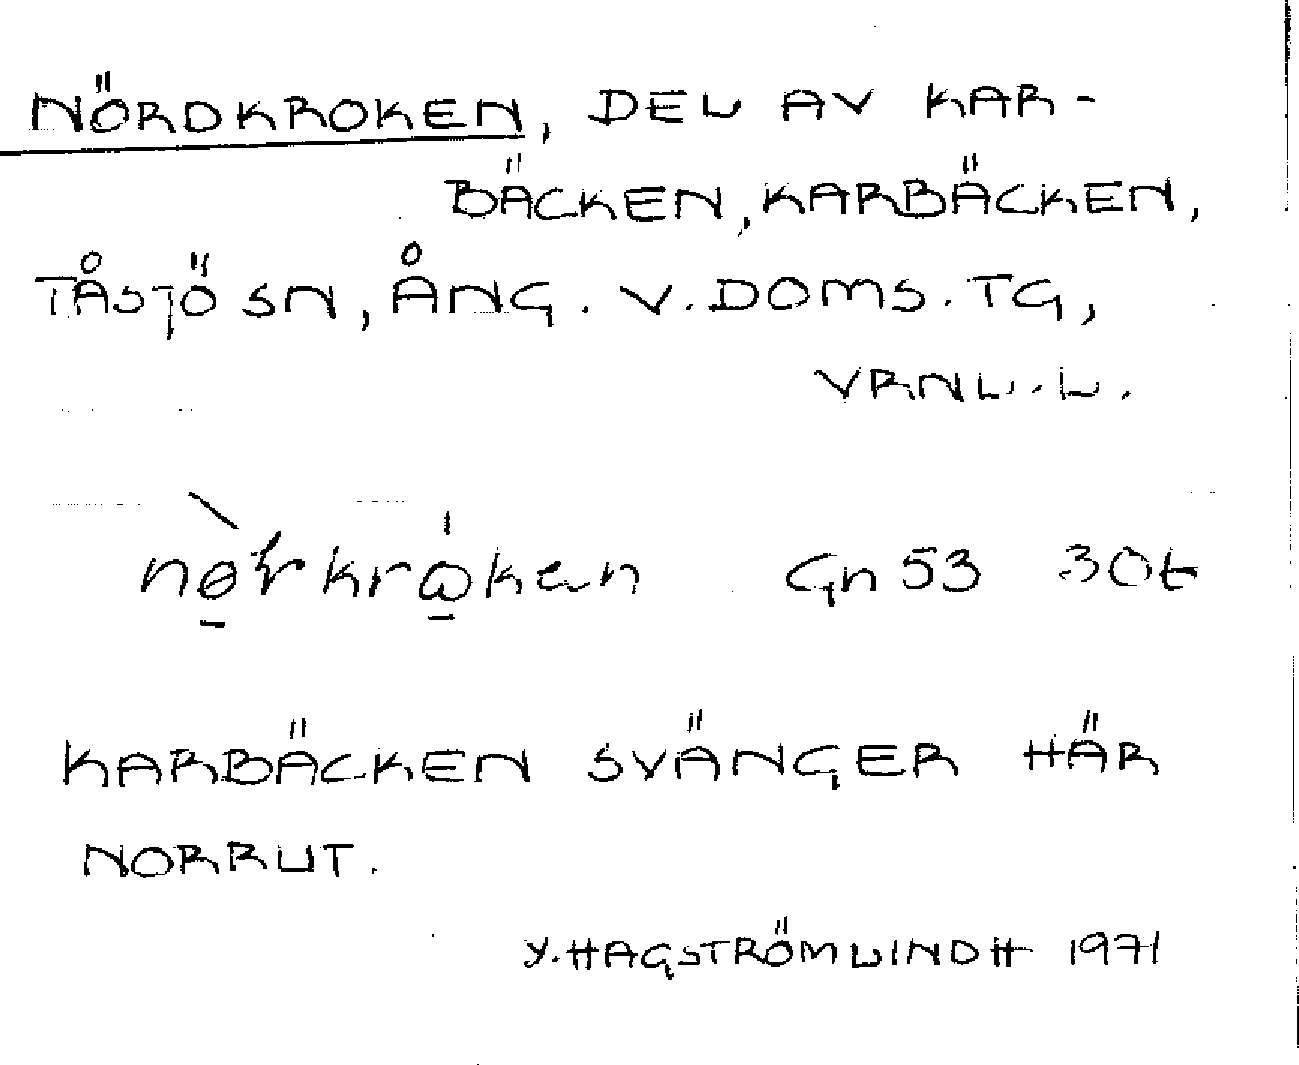 NÖRDKROKEN, DEL AV KAR-
BÄCKEN, KARBÄCKEN,
TÅSJÖ SN, ÅNG. V. DOMS. TG,
VRNL. L.
nørkroken Gn 53 30t
KARBÄCKEN SVÄNGER HÄR
NORRUT.
Y. HAGSTRÖM LINDH 1971